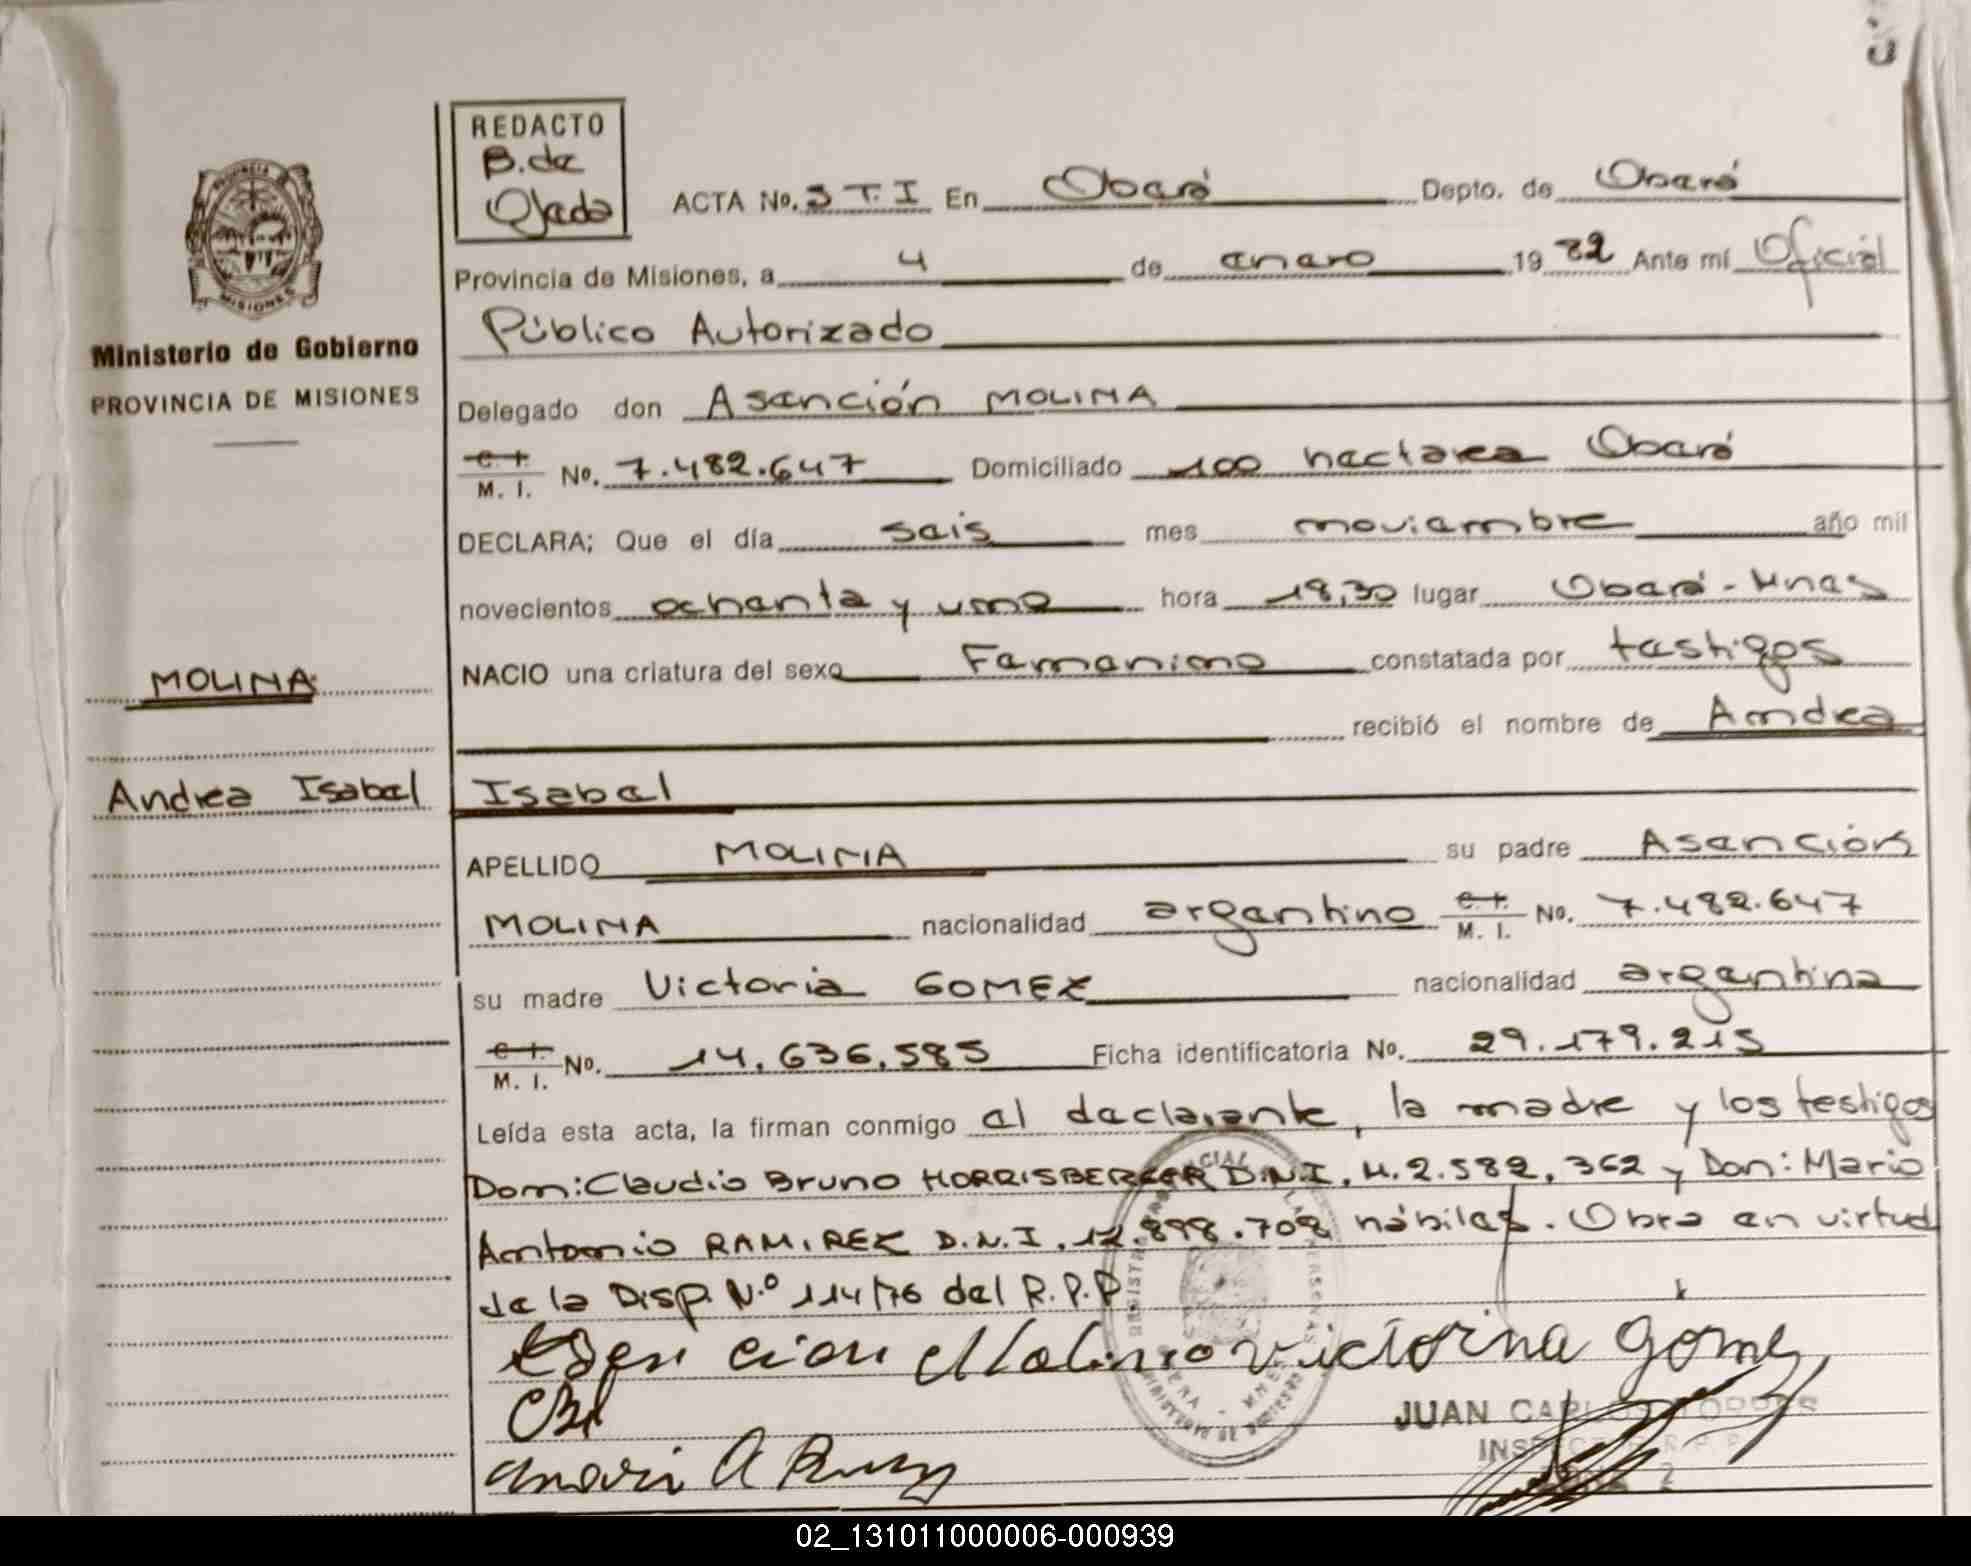 REDACTO
B. de
Ojeda
ACTA No. 3 T. I En Oberá Depto. de Oberá
Provincia de Misiones, a 4 de enero 1982 Ante mí Oficial
Público Autorizado
Ministerio de Gobierno
PROVINCIA DE MISIONES
Delegado don Asención MOLINA
C. I. M. I. No. 7.482.647 Domiciliado 100 hectarea Oberá
DECLARA; Que el día seis mes noviembre año mil
novecientos ochenta y uno hora 18,30 lugar Oberá - Mnes
MOLINA
NACIO una criatura del sexo Femenino constatada por testigos
recibió el nombre de Andrea
Andrea Isabel
Isabel
APELLIDO MOLINA su padre Asención
MOLINA nacionalidad argentino C. I. M. I. No. 7.482.647
su madre Victoria GOMEZ nacionalidad argentina
C. I. M. I. No. 14.636.585 Ficha identificatoria No. 29.179.215
Leída esta acta, la firman conmigo el declarante, la madre y los testigos
Don: Claudio Bruno HORRISBERGER D.N.I. M. 2.582.362 y Don: Mario
Antonio RAMIREZ D.N.I. 12.898.708 hábiles. Obra en virtud
de la Disp. N.º 114/76 del R.P.P
Asencion Molina Victorina Gomez
JUAN CARLOS TORRES
02_131011000006-000939